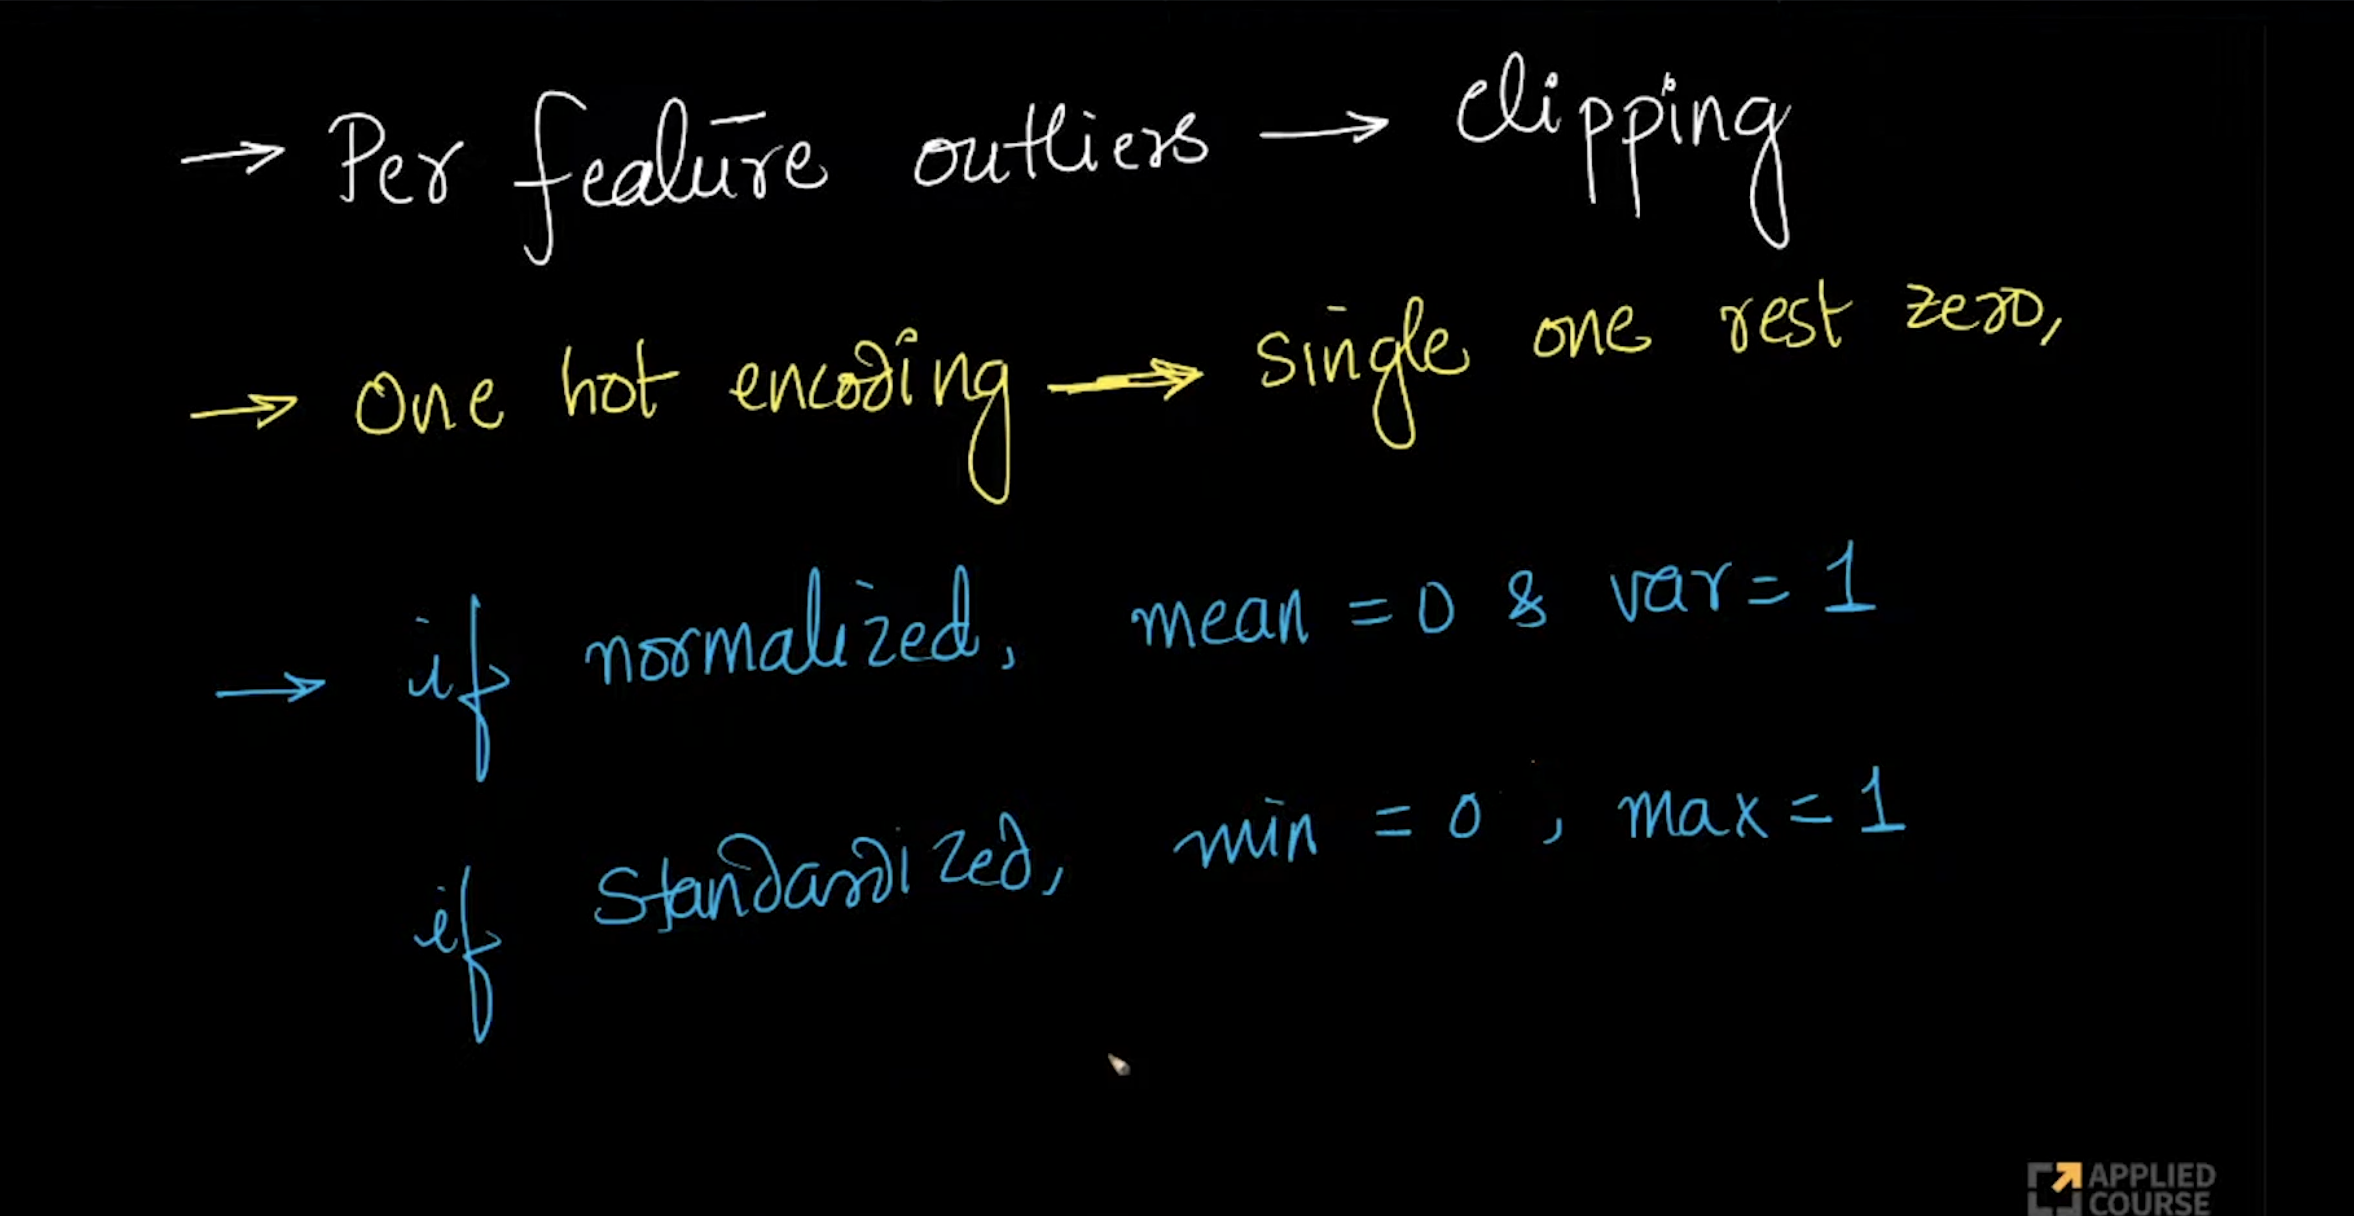 → Per feature outliers → clipping
→ One hot encoding → single one rest zero,
→ if normalized, mean = 0 & var = 1
if standardized, min = 0, max = 1
APPLIED
COURSE